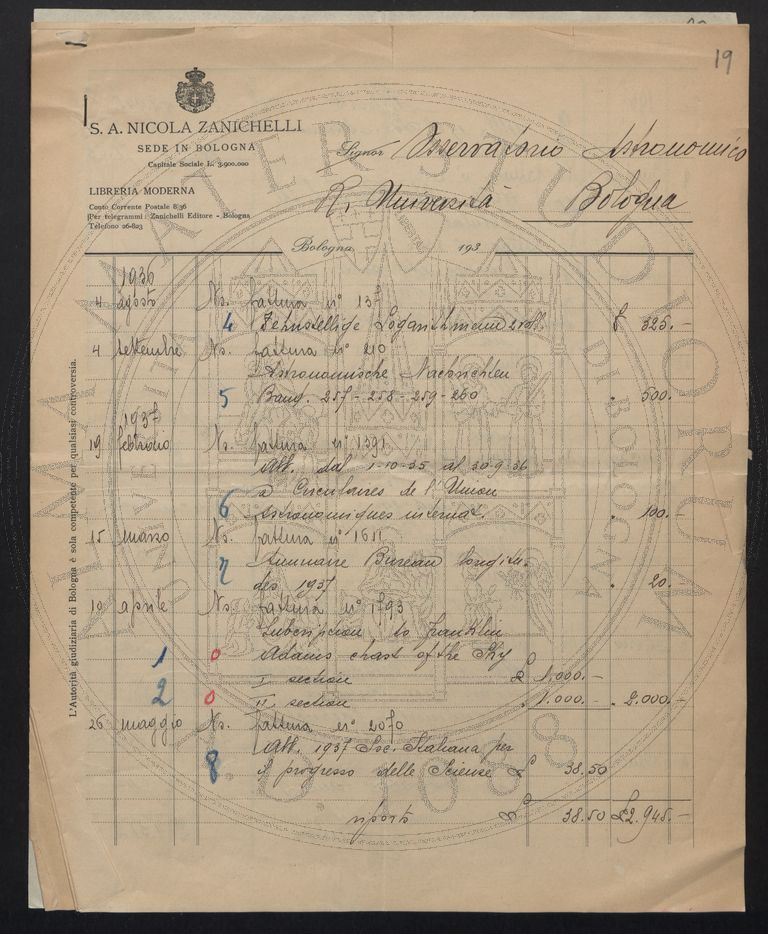 19
S. A. NICOLA ZANICHELLI
SEDE IN BOLOGNA
Capitale Sociale L. 3.900.000
LIBRERIA MODERNA
Conto Corrente Postale 8/36
Per telegrammi: Zanichelli Editore - Bologna
Telefono 26-823
Signor Osservatorio Astronomico
R. Università Bologna
Bologna 193
1936
4 agosto Ns. fattura n° 137
4 Zehnstellige Logarithmen £ 325.-
4 settembre Ns. fattura n° 210
Astronomische Nachrichten
5 Band. 257 - 258 - 259 - 260 " 500.-
1937
19 febbraio Ns. fattura n° 1391
Abb. dal 1-10-35 al 30-9-36
a Circulaires de l'Union
6 Astronomiques internat. " 100.-
15 marzo Ns. fattura n° 1611
7 Annuaire Bureau longitu-
des 1937 " 20.-
19 aprile Ns. fattura n° 1793
Subscription to Franklin
1 0 Adams chart of the Sky
I section £ 1.000.-
2 0 II section " 1.000.- " 2.000.-
26 maggio Ns. fattura n° 2070
Abb. 1937 Soc. Italiana per
8 il progresso delle Scienze £ 38.50
riporto £ 38.50 £ 2.945.-
L'Autorità giudiziaria di Bologna è sola competente per qualsiasi controversia.
ALMA MATER STUDIORUM
UNIVERSITÀ DI BOLOGNA
A.D. 1088